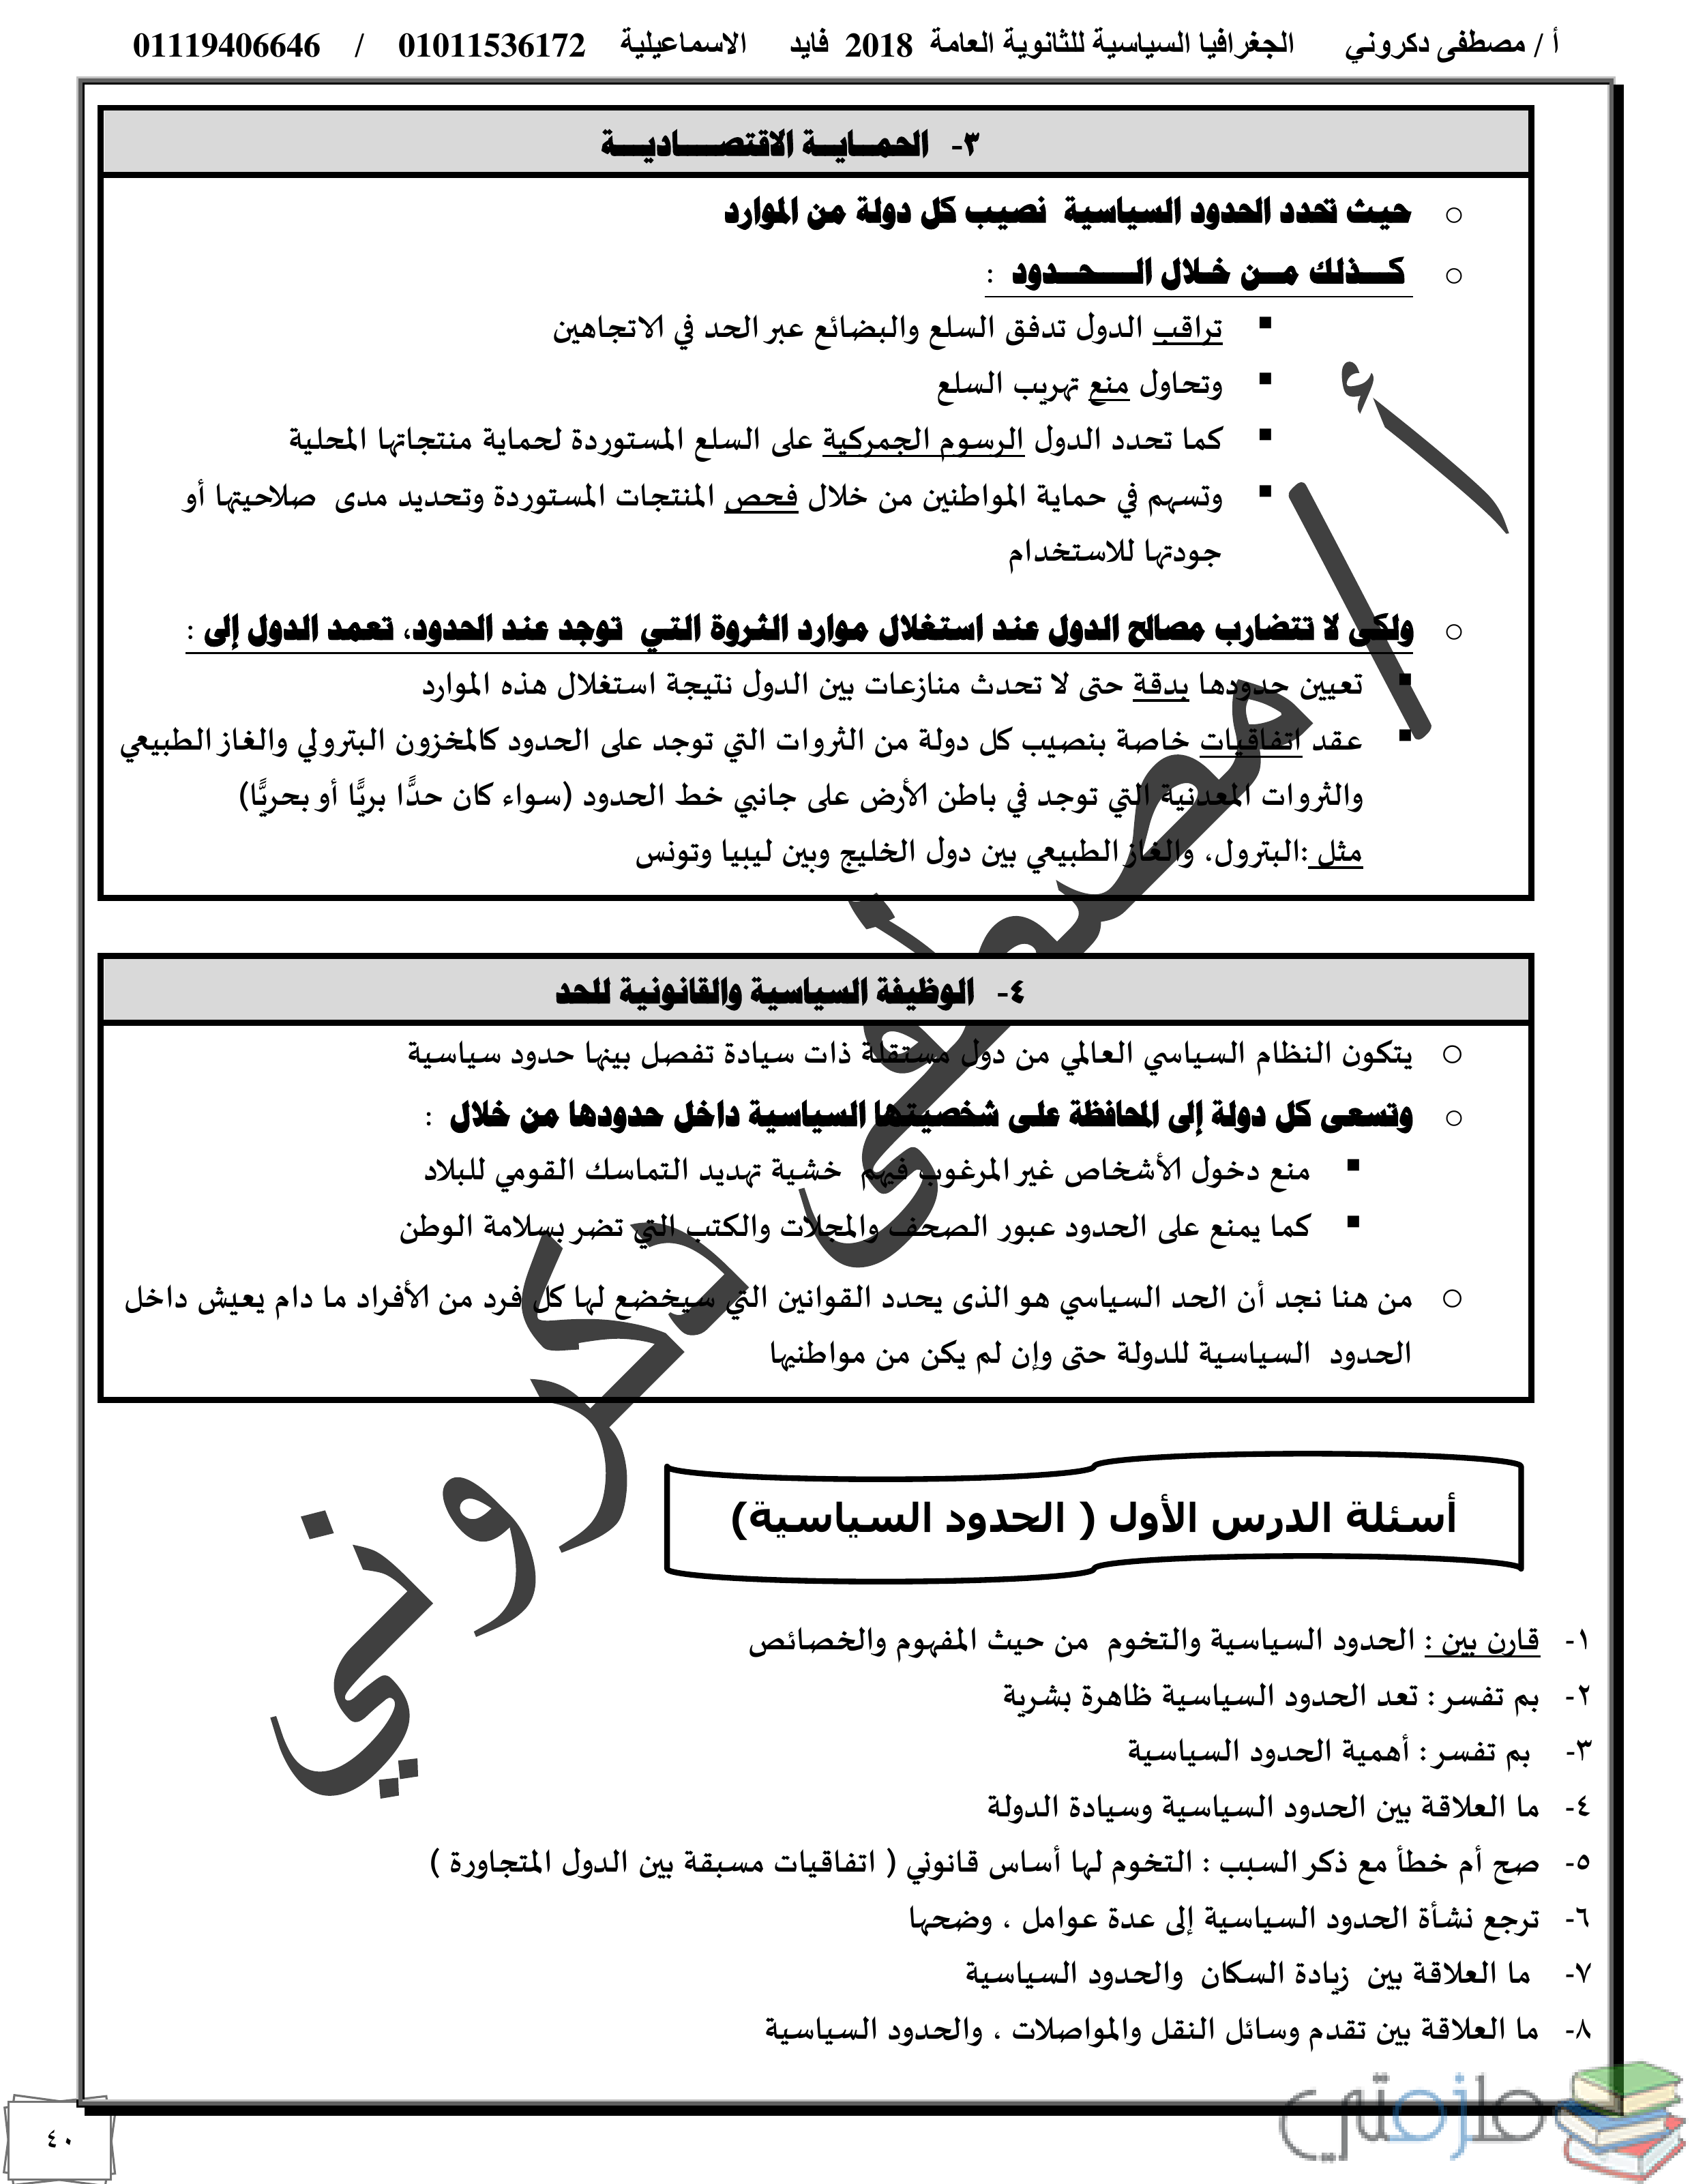 أ / مصطفى دكروني الجغرافيا السياسية للثانوية العامة 2018 فايد الاسماعيلية 01011536172 / 01119406646
٣- الحمـــايـــة الاقتصــــــاديـــــة
حيث تحدد الحدود السياسية نصيب كل دولة من الموارد
كـــذلك مـــن خـلال الـــــحـــدود :
تراقب الدول تدفق السلع والبضائع عبر الحد في الاتجاهين
وتحاول منع تهريب السلع
كما تحدد الدول الرسوم الجمركية على السلع المستوردة لحماية منتجاتها المحلية
وتسهم في حماية المواطنين من خلال فحص المنتجات المستوردة وتحديد مدى صلاحيتها أو
جودتها للاستخدام
ولكى لا تتضارب مصالح الدول عند استغلال موارد الثروة التي توجد عند الحدود، تعمد الدول إلى :
تعيين حدودها بدقة حتى لا تحدث منازعات بين الدول نتيجة استغلال هذه الموارد
عقد اتفاقيات خاصة بنصيب كل دولة من الثروات التي توجد على الحدود كالمخزون البترولي والغاز الطبيعي
والثروات المعدنية التي توجد في باطن الأرض على جانبي خط الحدود (سواء كان حدًّا بريًّا أو بحريًّا)
مثل :البترول، والغاز الطبيعي بين دول الخليج وبين ليبيا وتونس
٤- الوظيفة السياسية والقانونية للحد
يتكون النظام السياسي العالمي من دول مستقلة ذات سيادة تفصل بينها حدود سياسية
وتسعى كل دولة إلى المحافظة على شخصيتها السياسية داخل حدودها من خلال :
منع دخول الأشخاص غير المرغوب فيهم خشية تهديد التماسك القومي للبلاد
كما يمنع على الحدود عبور الصحف والمجلات والكتب التي تضر بسلامة الوطن
من هنا نجد أن الحد السياسي هو الذى يحدد القوانين التي سيخضع لها كل فرد من الأفراد ما دام يعيش داخل
الحدود السياسية للدولة حتى وإن لم يكن من مواطنيها
أ / مصطفى دكروني
أسئلة الدرس الأول ( الحدود السياسية)
١- قارن بين : الحدود السياسية والتخوم من حيث المفهوم والخصائص
٢- بم تفسر : تعد الحدود السياسية ظاهرة بشرية
٣- بم تفسر : أهمية الحدود السياسية
٤- ما العلاقة بين الحدود السياسية وسيادة الدولة
٥- صح أم خطأ مع ذكر السبب : التخوم لها أساس قانوني ( اتفاقيات مسبقة بين الدول المتجاورة )
٦- ترجع نشأة الحدود السياسية إلى عدة عوامل ، وضحها
٧- ما العلاقة بين زيادة السكان والحدود السياسية
٨- ما العلاقة بين تقدم وسائل النقل والمواصلات ، والحدود السياسية
ملازمتي
٤٠